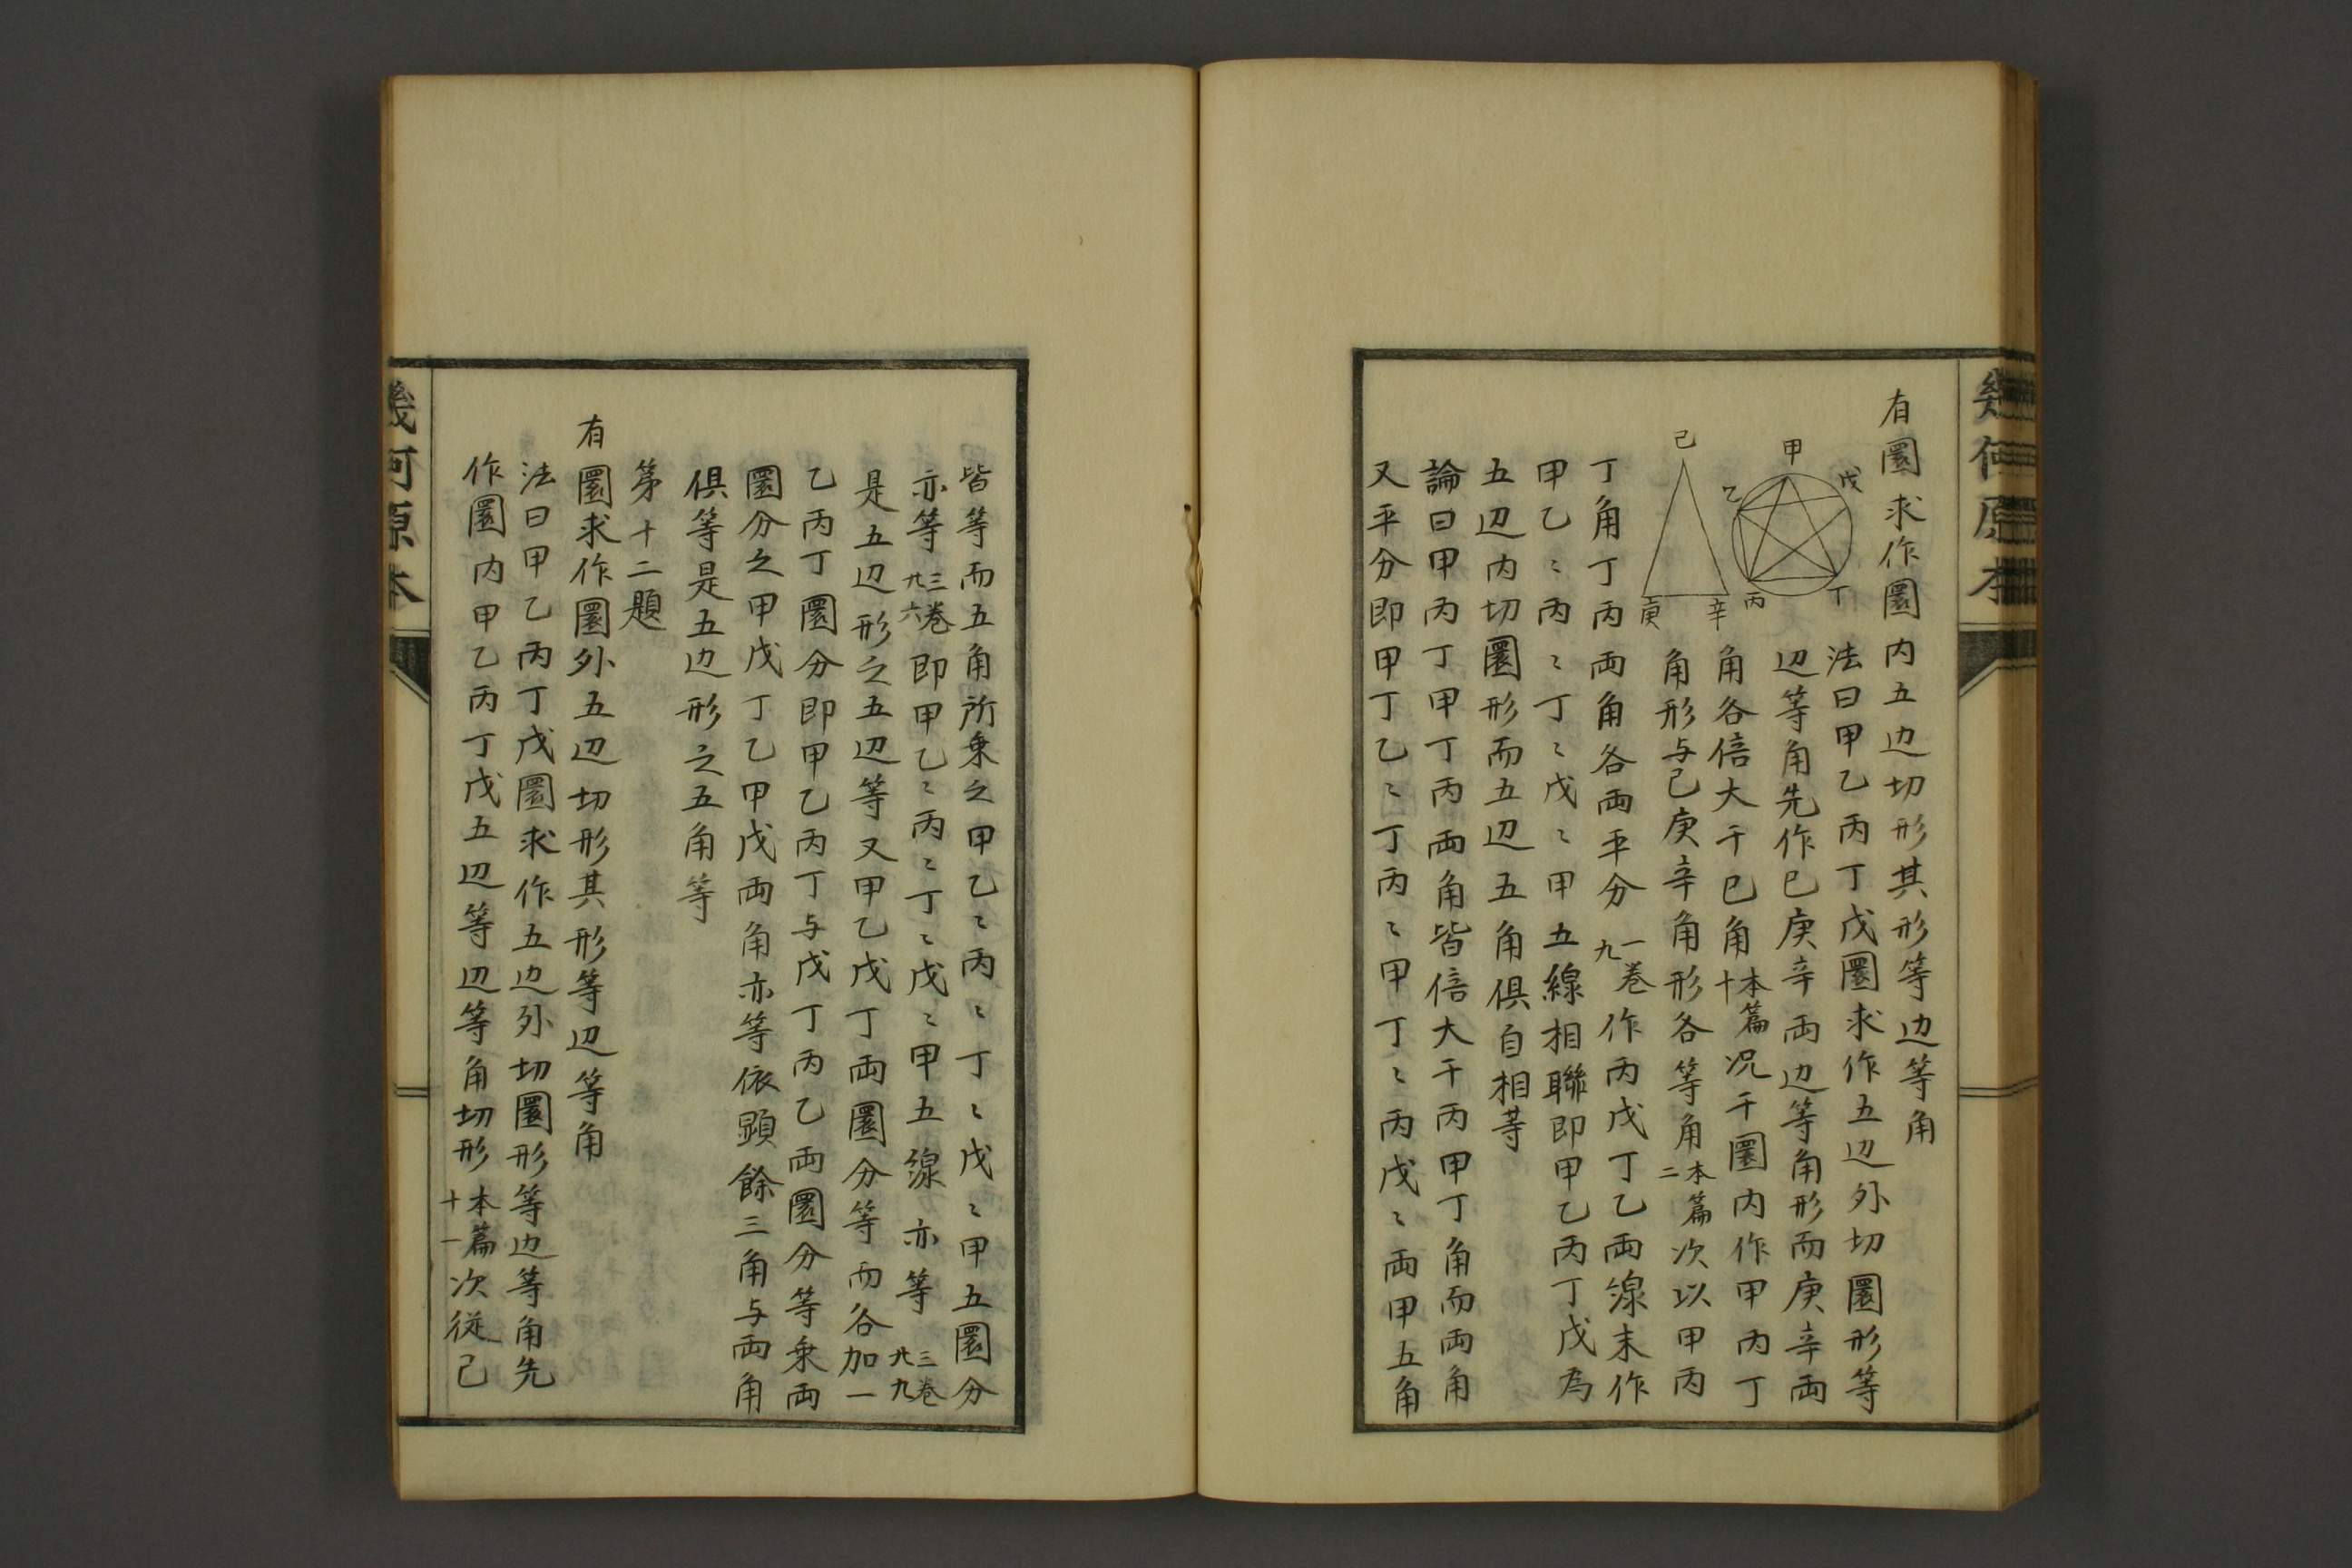 幾何原本
有圜求作圜内五边切形其形等边等角
甲
戊
乙
丙
丁
己
庚
辛
法曰甲乙丙丁戊圜求作五辺外切圜形等
辺等角先作巳庚辛両边等角形而庚辛両
角各倍大于巳角本篇十况于圜内作甲丙丁
角形与己庚辛角形各等角本篇二次以甲丙
丁角丁丙両角各両平分一卷九作丙戊丁乙両線末作
甲乙〻丙〻丁〻戊〻甲五線相聯即甲乙丙丁戊為
五辺内切圜形而五辺五角俱自相等
論曰甲丙丁甲丁丙両角皆倍大于丙甲丁角而両角
又平分即甲丁乙〻丁丙〻甲丁〻丙戊〻両甲五角
皆等而五角所乗之甲乙〻丙〻丁〻戊〻甲五圜分
亦等三卷廿六即甲乙〻丙〻丁〻戊〻甲五線亦等三卷廿九
是五辺形之五辺等又甲乙戊丁両圜分等而各加一
乙丙丁圜分即甲乙丙丁与戊丁丙乙両圜分等乗両
圜分之甲戊丁乙甲戊両角亦等依顕餘三角与両角
俱等是五边形之五角等
第十二題
有圜求作圜外五辺切形其形等辺等角
法曰甲乙丙丁戊圜求作五边外切圜形等边等角先
作圜内甲乙丙丁戊五辺等辺等角切形本篇十一次従己
幾何原本